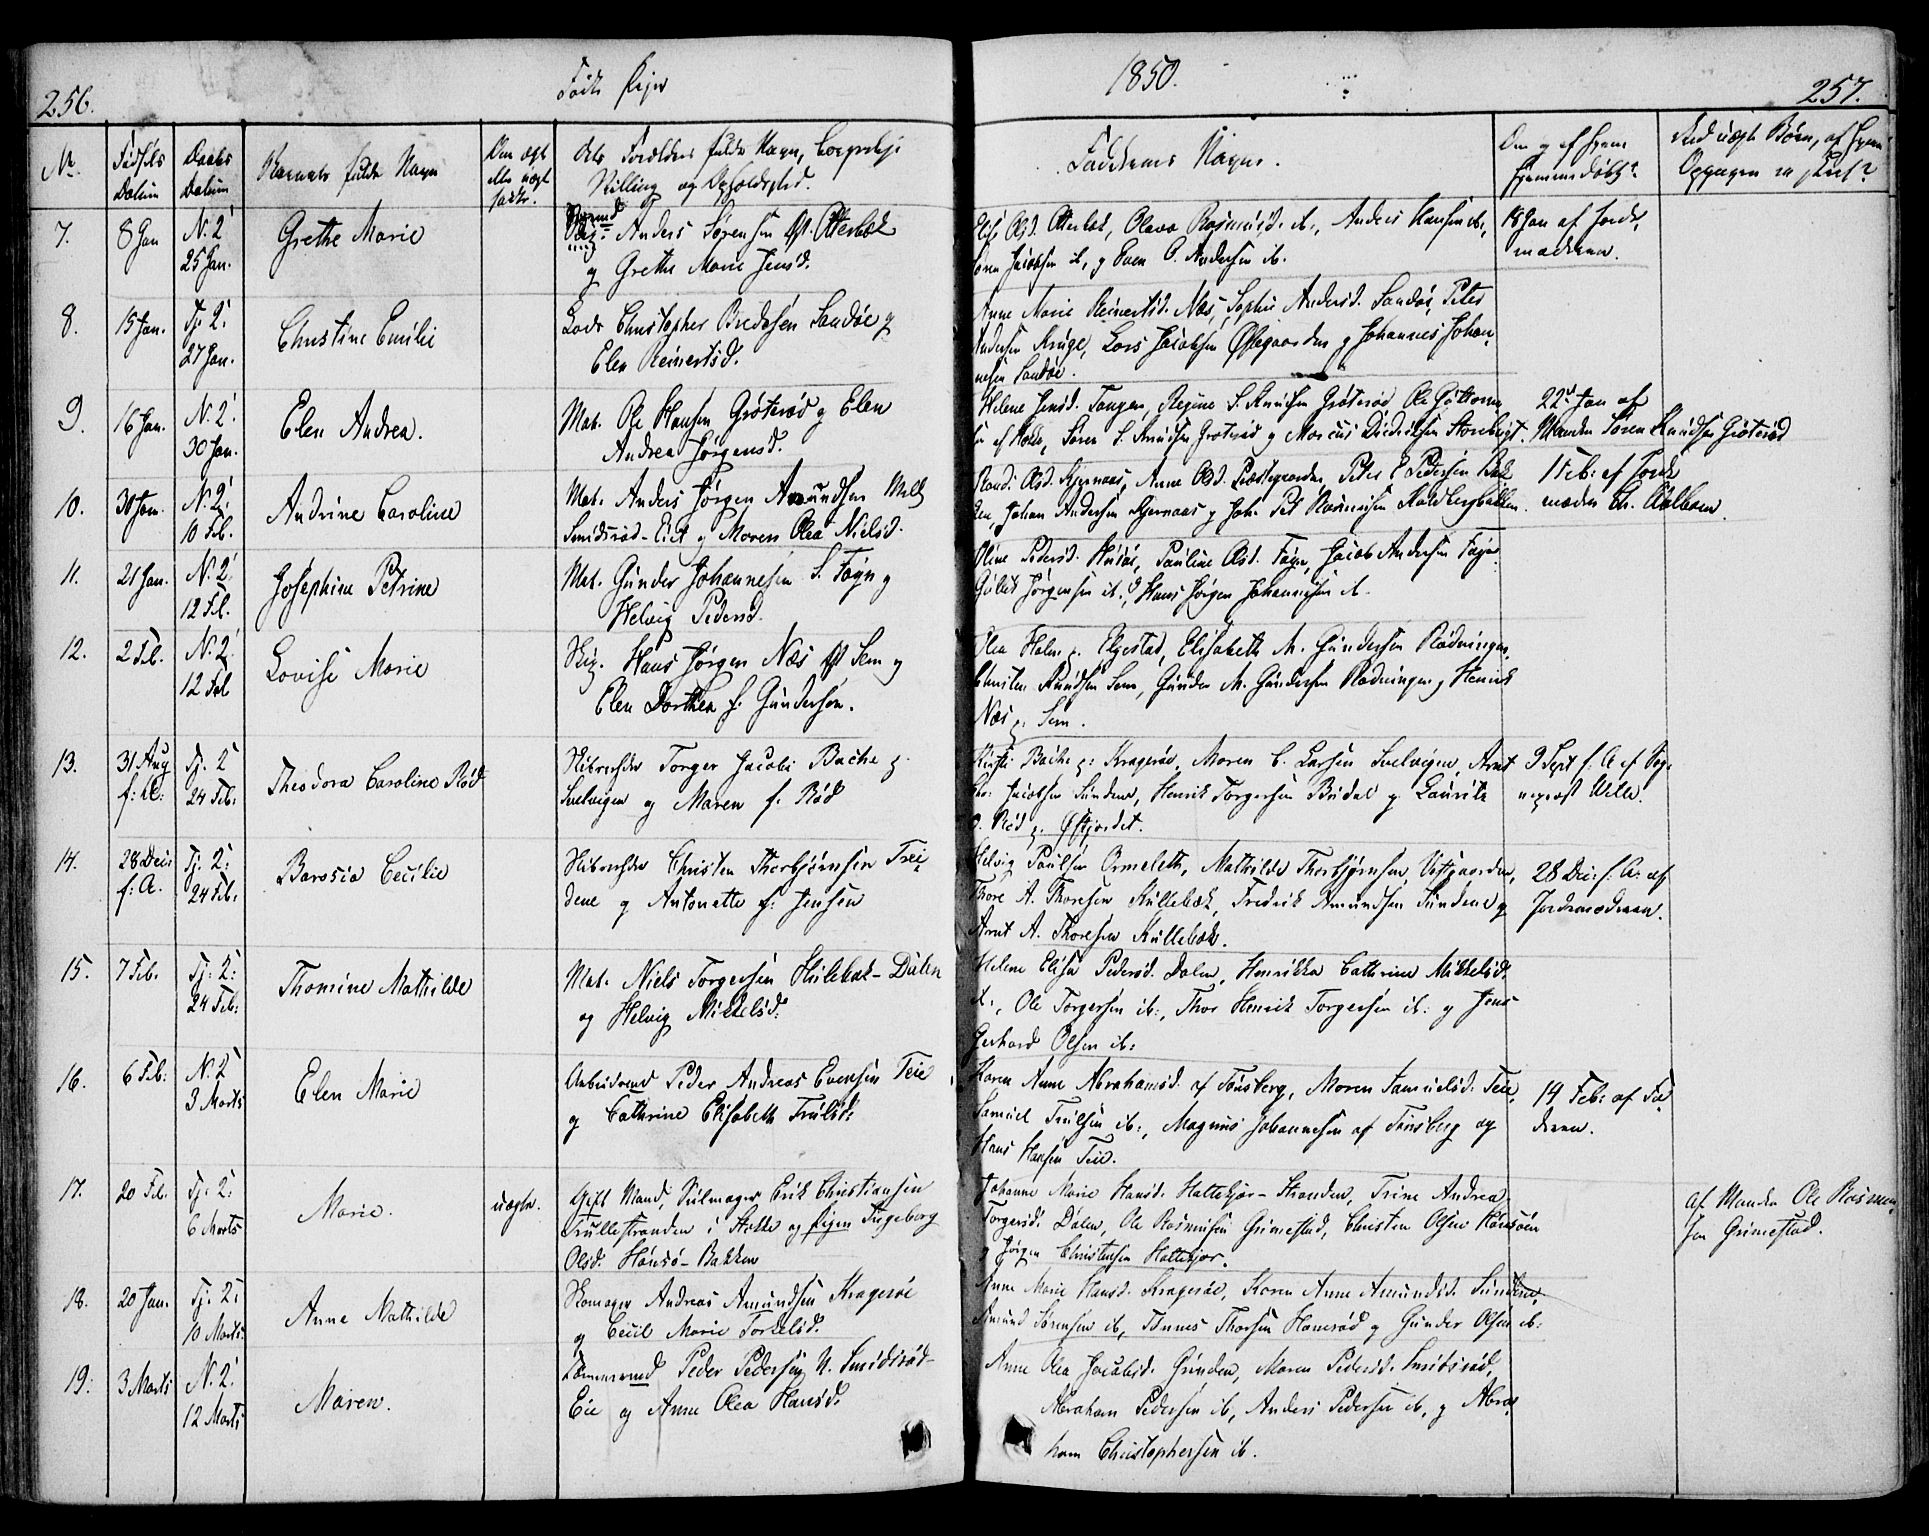 256.
Fødte Piger
1850.
257.
No.
Fødsels Datum
Daabs Datum
Barnets fulde Navn
Om ægte eller uægte født.
Dets Forældres fulde Navn, Borgerlige Stilling og Opholdsted.
Faddernes Navne.
Om og af hvem hjemmedøbt?
Ved uægte Børn, af hvem Opgaven er skeet?
7.
8 Jan
N. 2
25 Jan.
Grethe Marie
Anders Sørensen Øst. Otterbek
og Grethe Marie Jensd.
Olsd. Otterbek, Olava Rasmusd. ib., Anders Hansen ib.,
Søren Jacobsen ib, og Sven O. Andersen ib.
18 Jan af Jorde,
moderen.
8.
15 Jan.
Tj. 2
27 Jan.
Christine Emilie
Lods Christopher Bredesen Sandøe og
Elen Reinertsd.
Anne Marie Reinertsd. Næs, Sophie Andersd. Sandøe, Peter
Andersen Kruge, Lars Jacobsen Østegaarden og Johannes Johan,
nesen Sandøe.
9.
16 Jan.
N. 2
30 Jan.
Elen Andrea.
Mat. Ole Hansen Grøterød og Elen
Andrea Jørgensd.
Helene Jensd. Tangen, Regine S. Knudsen Grøterød, Ole Guttorm,
sen af Holte, Søren S. Knudsen Grøterød og Marcus Diedriksen Storebugt.
22 Jan af
Manden Søren Knudsen Grøterød
10.
30 Jan.
N. 2
10 Feb.
Andrine Caroline
Mat. Anders Jørgen Amundsen Mell
Smidsrød-Eiet og Maren Olea Nielsd.
Randi Olsd. Kjernaas, Anne Olsd. Præstegaarden, Peter E Pedersen Bak
ken, Johan Andersen Kjernaas og Joh. Pet Rasmusen Roldbergbakken.
1 Feb: af Jorde
moder Ch. Aalborn.
11.
21 Jan.
N. 2
12 Feb.
Josephine Petrine
Mat. Gunder Johannesen S. Føyn og
Helvig Pedersd.
Oline Pedersd. Husøe, Pauline Olsd. Føyn, Jacob Andersen Føyn
Gulik Jørgensen ib., Hans Jørgen Johannesen ib.
12.
2 Feb.
N. 2
12 Feb
Lovise Marie
Skip. Hans Jørgen Næs Øst Sem og
Elen Dorthea f. Gundersen.
Olea Holm p. Elgestad, Elisabeth M. Gundersen Rødningen,
Christen Knudsen Sem, Gunder M. Gundersen Rødningen og Henrik
Næs p. Sem.
13.
31 Aug
f: A:
Tj. 2
24 Feb:
Theodora Caroline Rød
Skibsreder Torger Jacobs Bache p.
Svelvigen og Maren f. Rød
Kirsti Bache p: Kragerøe, Maren C. Larsen Svelvigen, Arnt
Chr: Jacobsen Sundene, Henrik Torgersen Budal og Lauritz
O. Rød p. Østjordet.
9 Sept f. A af Sog,
neprest Wille.
14.
28 Dec:
f: A.
Tj. 2:
24 Feb:
Barosia Cecilie
Skibsreder Christen Thorbjørnsen Trei
dene og Antonette f: Jensen
Helvig Paulsen Ormeleth, Mathilde Thorbjørnsen Vestgaarden,
Thore A. Thoresen Kullebæk, Fredrik Amundsen Sundene og
Arnt A. Thoresen Kullebæk.
28 Dec: f: A: af
Jordemoderen.
15.
7 Feb.
Tj: 2:
24 Feb:
Thomine Mathilde
Mat. Niels Torgersen Hulebak-Dalen
og Helvig Mikkelsd:
Helene Elise Pedersd. Dalen, Henrikka Cathrine Mikkelsd.
ib., Ole Torgersen ib:, Thor Henrik Torgersen ib: og Jens
Gerhard Olsen ib:
16.
6 Feb:
N. 2
3 Marts
Elen Marie
Arbeidsmd Peder Andreas Evensen Teie
og Cathrine Elisabeth Trulsd:
Karen Anne Abrahamsd. af Tønsberg, Maren Samuelsd: Teie,
Samuel Trulsen ib:, Magnus Johannesen af Tønsberg og
Hans Hansen Teie.
19 Feb: af Fa,
deren.
17.
20 Feb.
Tj: 2:
6 Marts
Marie.
uægte.
Gift Mand, Seilmager Erik Christiansen
Trullestranden i Stokke og Pigen Ingeborg
Olsd. Hønsø-Bakken
Johanne Marie Hansd. Hattekjær-Stranden, Trine Andrea
Torgersd. Dalen, Ole Rasmusen Grimestad, Christen Olsen Hønsøen
og Jørgen Christensen Hattekjær.
af Manden Ole Rasmus,
sen Grimestad.
18.
20 Jan.
Tj. 2:
10 Marts.
Anne Mathilde
Skomager Andreas Amundsen Kragerøe
og Cecil Marie Torkelsd.
Anne Marie Hansd. Kragerøe, Karen Anne Amundsd. Sundene,
Amund Sørensen ib, Tønnes Thorsen Hanerød og Gunder Olsen ib:
19:
3 Marts
N. 2
12 Marts
Maren.
Tømmermd Peder Pedersen N. Smidsrød-
Eie og Anne Olea Hansd:
Anne Olea Jacobsd. Grunden, Maren Pedersd. Smidsrød,
Abraham Pedersen ib, Anders Pedersen ib, og Abra,
ham Christophersen ib.